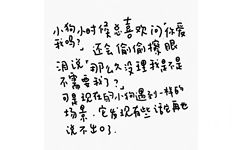 小狗小时候总喜欢问“你爱
我吗?”还会偷偷擦眼
泪说“那么久没理我是不
是不需要我了?”
可是现在的小狗遇到一样的
场景，它发现有些话它再也
说不出口了.